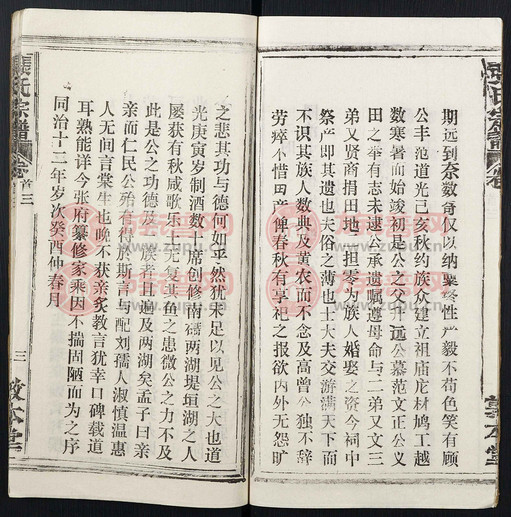 張氏宗譜
期远到奈数奇仅以纳粟终性严毅不苟色笑有顾
公丰范道光己亥秋约族众建立祖庙庀材鸠工越
数寒暑而始竣初是公之父升远公慕范文正公义
田之举有志未逮公承遗嘱遵母命与二弟又文三
弟又贤商捐田地 担零为族人婚娶之资今祠中
祭产即其遗也夫俗之薄也士大夫交游满天下而
不识其族人数典及黄农而不念及高曾公独不辞
劳瘁不惜田产俾春秋有享祀之报欲内外无怨旷
之悲其功与德何如乎然犹未足以见公之大也道
光庚寅岁制酒数十席创修南 两湖堤垣湖之人
屡获有秋咸歌乐土无复其鱼之患微公之力不及
此是公之功德及 族者且遍及两湖矣孟子曰亲
亲而仁民公殆有得于斯言与配刘孺人淑慎温惠
人无间言棠生也晚不获亲炙教言犹幸口碑载道
耳熟能详今张府纂修家乘因不揣固陋而为之序
同治十二年岁次癸酉仲春月
張氏宗譜
卷首三
三
敦本堂
族谱网
www.zupu.cn